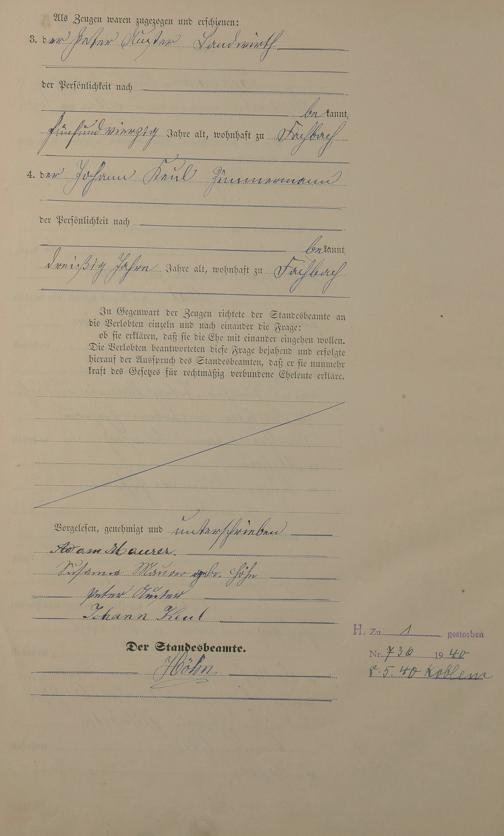 Als Zeugen waren zugezogen und erschienen:
3. der Peter Landwirth
der Persönlichkeit nach
be kannt,
fünfundvierzig Jahre alt, wohnhaft zu Fachbach
4. der Johann Keul Zimmermann
der Persönlichkeit nach
be kannt,
dreißig Jahre Jahre alt, wohnhaft zu Fachbach
In Gegenwart der Zeugen richtete der Standesbeamte an
die Verlobten einzeln und nach einander die Frage:
ob sie erklären, daß sie die Ehe mit einander eingehen wollen.
Die Verlobten beantworteten diese Frage bejahend und erfolgte
hierauf der Ausspruch des Standesbeamten, daß er sie nunmehr
kraft des Gesetzes für rechtmäßig verbundene Eheleute erkläre.
Vorgelesen, genehmigt und unterschrieben
Adam Maurer.
Susanna Maurer geb. Höhn
Peter
Johann Keul
Der Standesbeamte.
Höhn
H. Zu 1 gestorben
Nr. 736 1940
5. 40 Koblenz